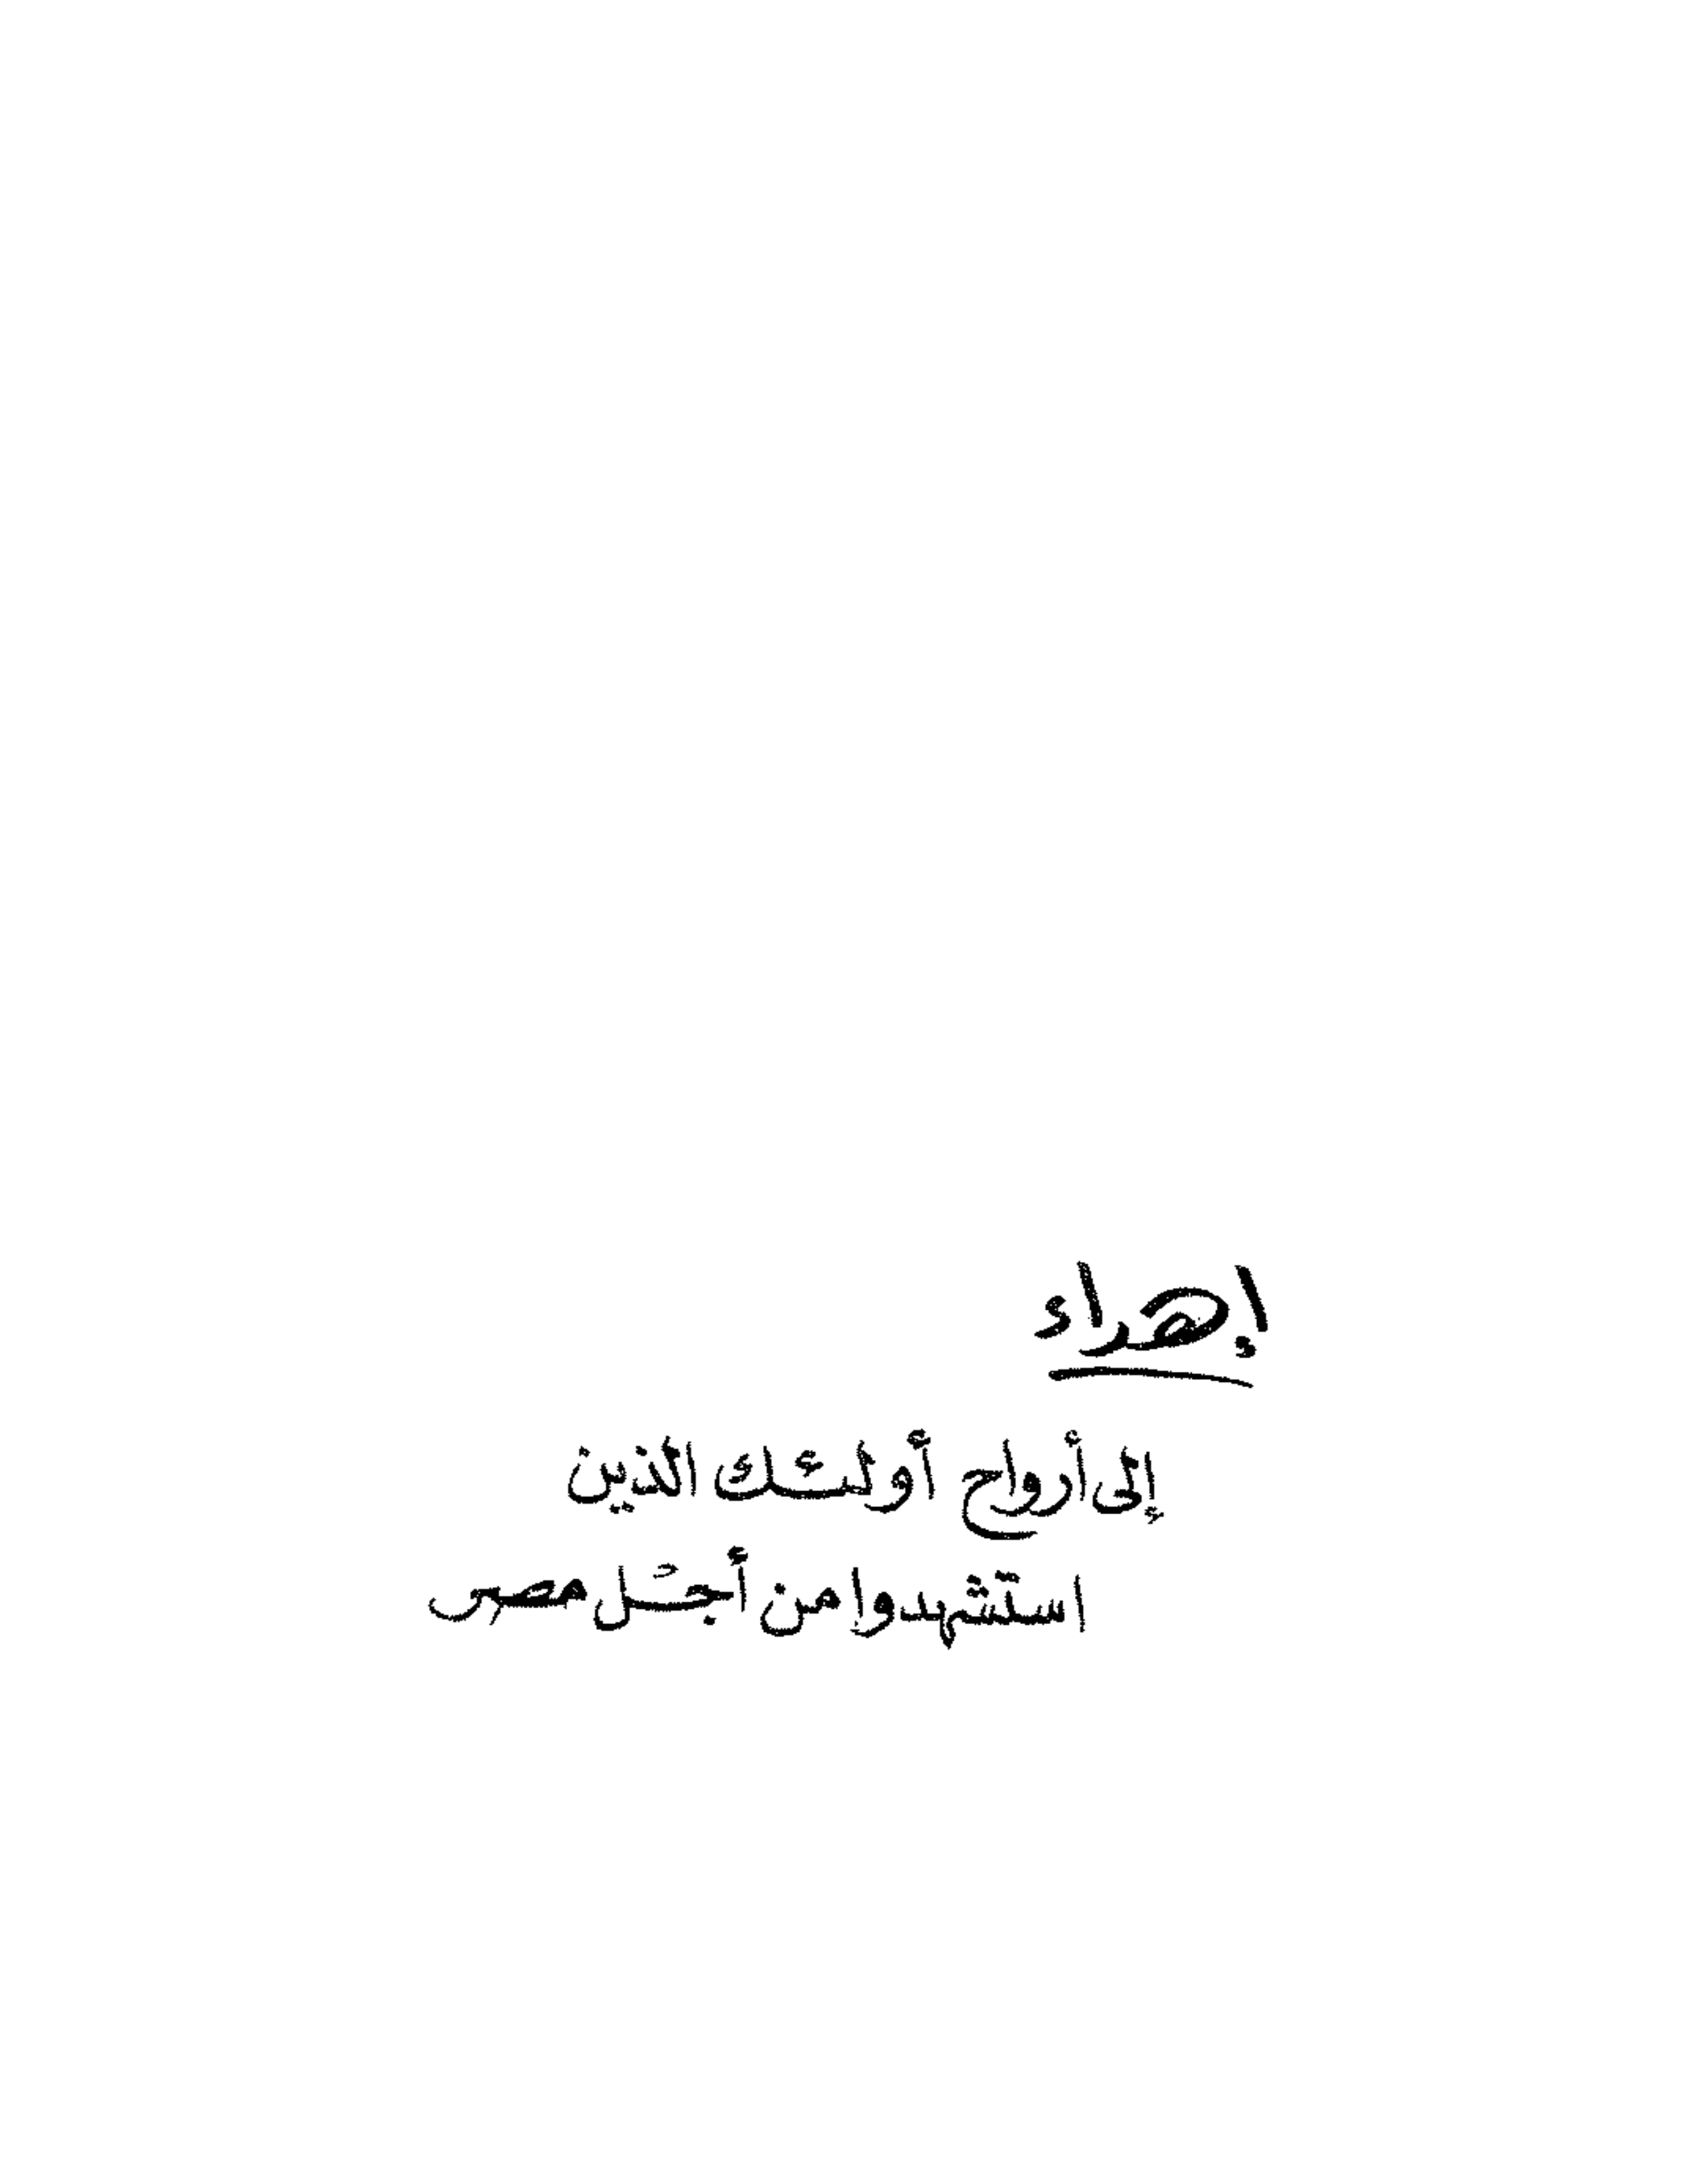 إهداء
إلى أرواح أولئك الذين
استشهدوا من أجل مصر